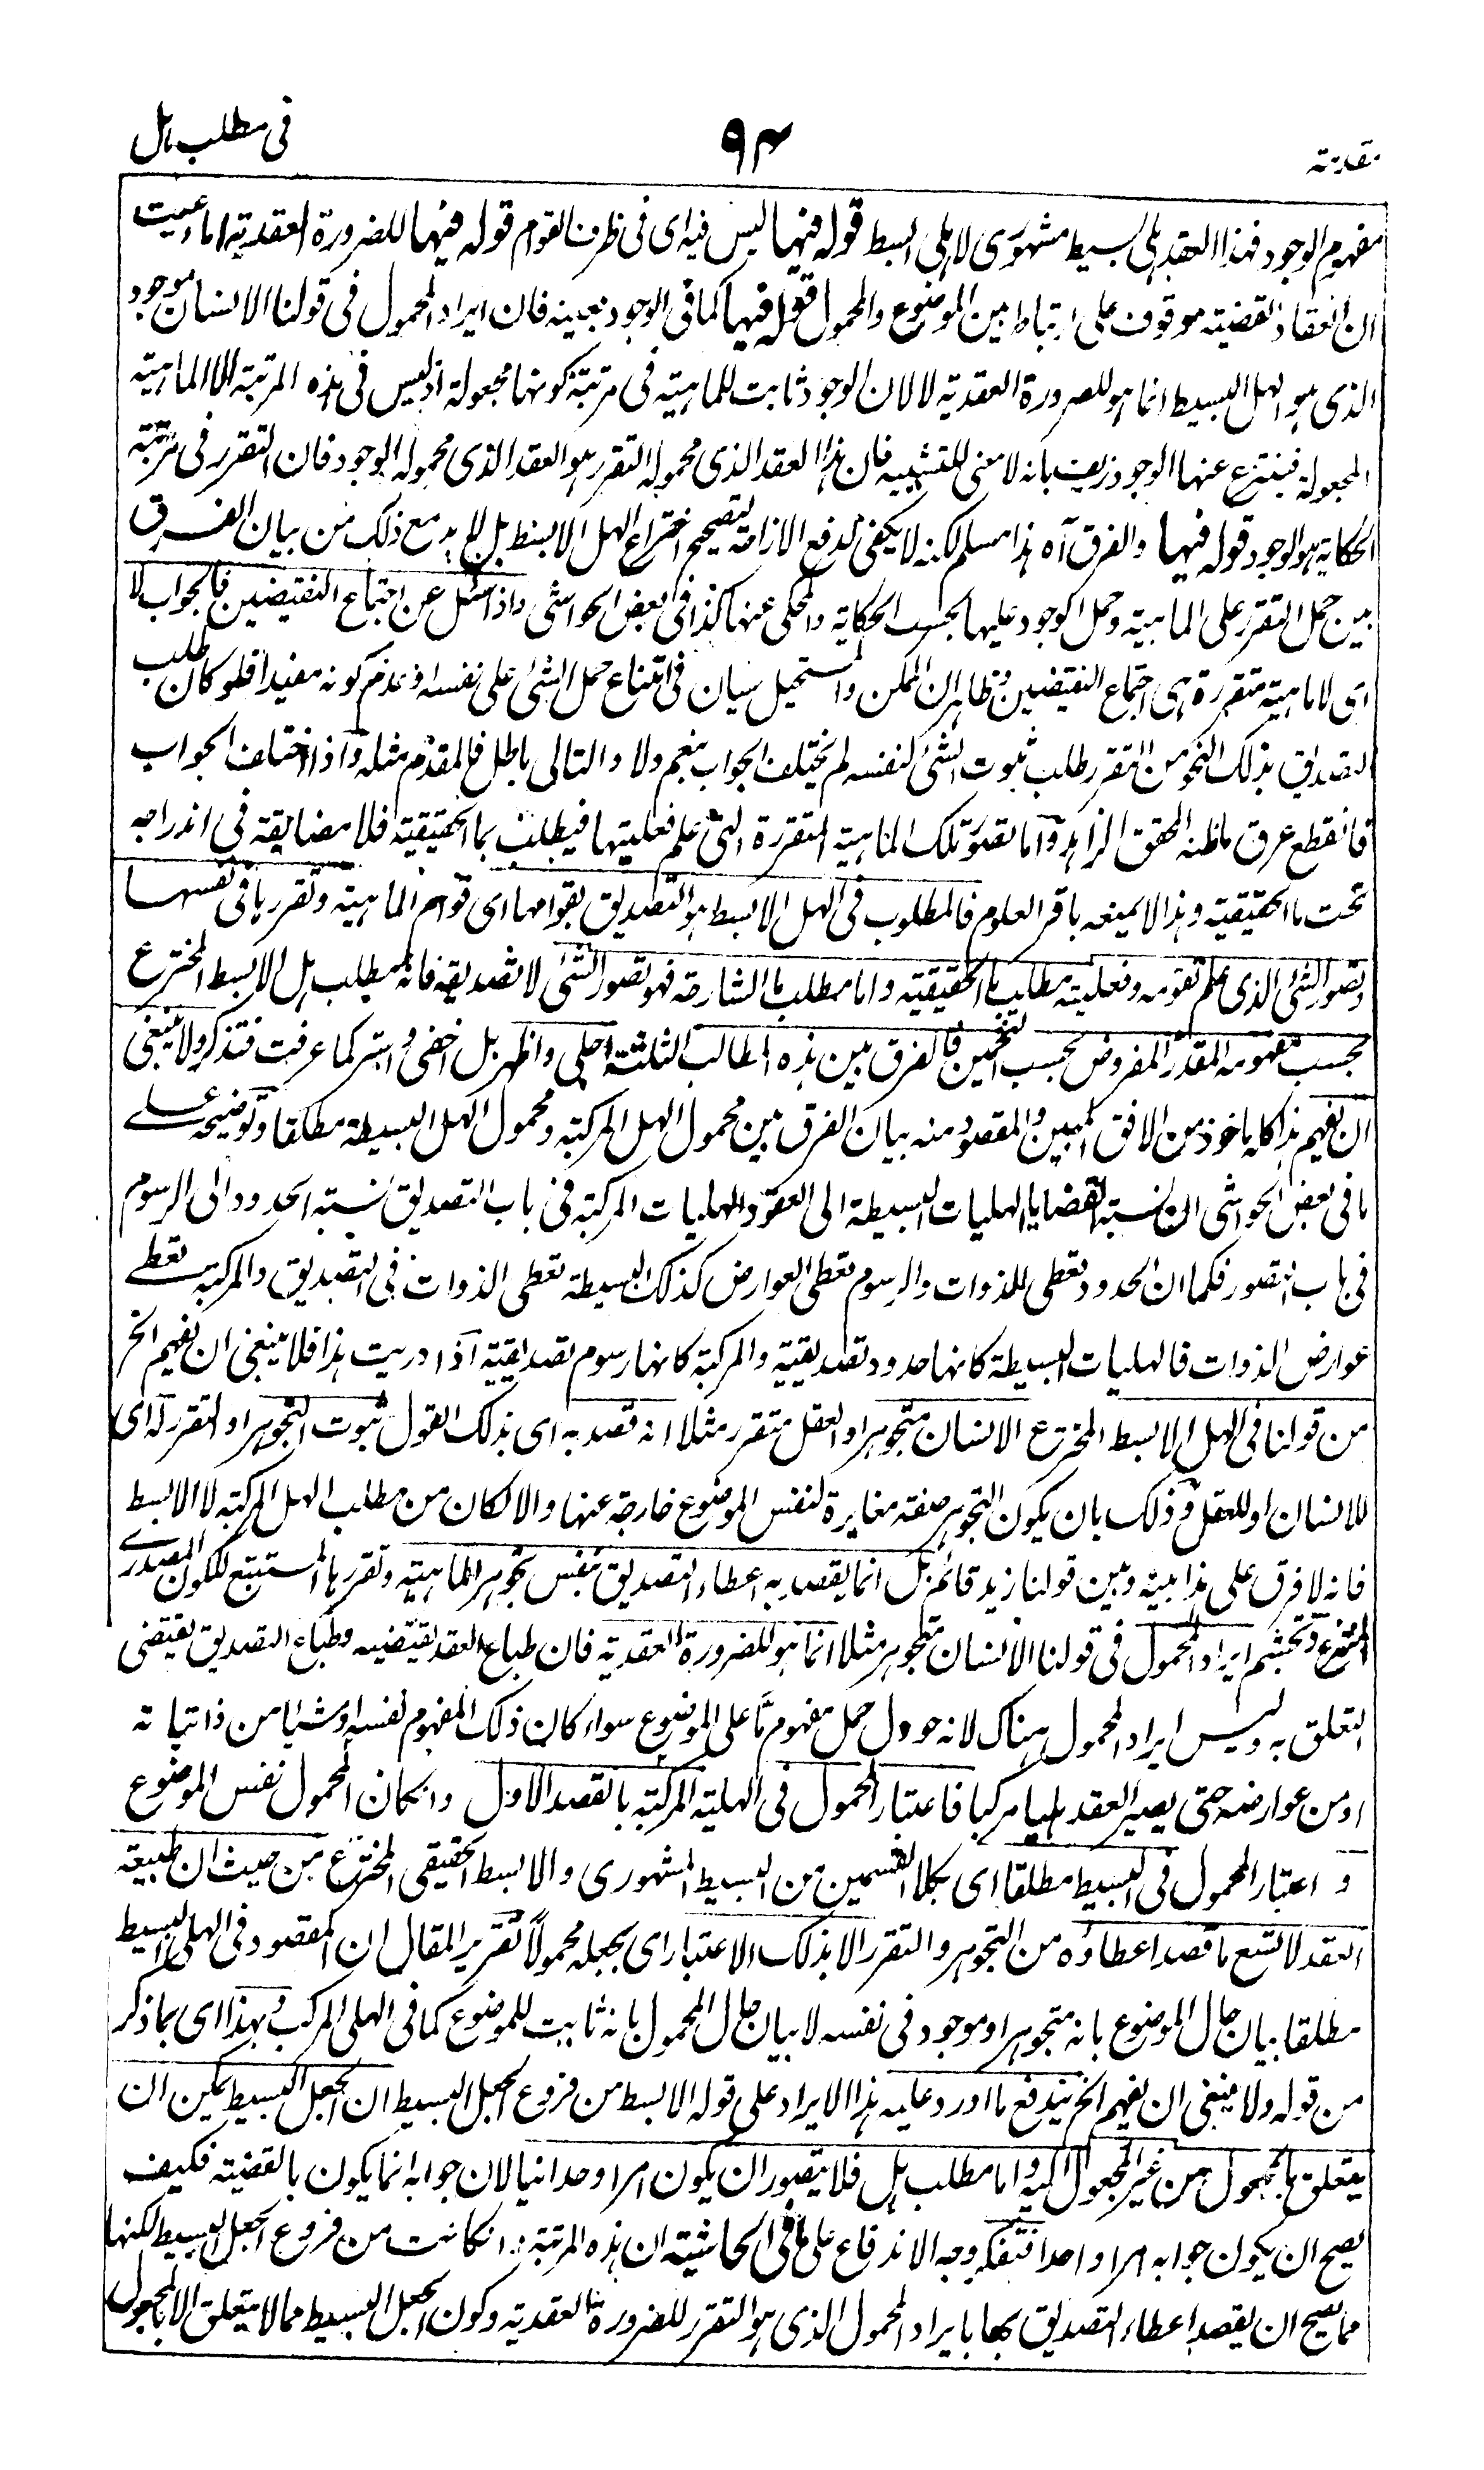 مقدمة
٩٣
فى مطلب هل
مفهوم الوجود فهذا العقد هلى بسيط مشهورى لا هلى ابسط قوله فيها ليس فيه اى فى ظرف القوام قوله فيها للضرورة العقدية اما عيت
ان انعقاد القضية موقوف على ارتباط بين الموضوع والمحمول قوله فيها كما فى الوجود بعينه فان ايراد المحمول فى قولنا الانسان موجود
الذى هو الهل البسيط انما هو للضرورة العقدية لا لان الوجود ثابت للماهية فى مرتبة كونها مجعولة اذ ليس فى هذه المرتبة الا الماهية
المجعولة فينتزع عنها الوجود زيف بانه لا معنى للتشبيه فان هذا العقد الذى محموله التقرر هو العقد الذى محموله الوجود فان التقرر فى مرتبة
الحكاية هو الوجود قوله فيها والفرق آه هذا مسلم لكنه لا يكفى لدفع الازامة لتصحيح اختراع الهل الابسط بل لابد مع ذلك من بيان الفرق
بين حمل التقرر على الماهية وحمل الوجود عليها بحسب الحكاية والمحكى عنها كذا فى بعض الحواشى واذا سئل عن اجتماع النقيضين فالجواب لا
اى لا ماهية متقررة هى اجتماع النقيضين وظاهر ان الممكن والمستحيل سيان فى امتناع حمل الشئ على نفسه او عدم كونه مفيدا فلو كان طلب
التصديق بذلك النحو من التقرر طلب ثبوت الشئ لنفسه لم يختلف الجواب بنعم ولا والتالى باطل فالمقدم مثله واذا اختلف الجواب
فانقطع عرق ما ظنه المحقق الزاهد واما تصور تلك الماهية المتقررة التى علم فعليتها فيطلب بما الحقيقية فلا مضايقة فى اندراجه
تحت ما الحقيقية وهذا لا يمنعه باقر العلوم فالمطلوب فى الهل الابسط هو التصديق بقوامها اى قوام الماهية وتقررها فى نفسها
وتصور الشئ الذى علم تقومه وفعليته مطالب ما الحقيقية واما مطلب ما الشارحة فهو تصور الشئ لا تصديقه فانه لمطلب هل الابسط المخترع
بحسب مفهومه المقدر المفروض بحسب التخمين فالفرق بين هذه المطالب الثلثة اجلى واظهر بل اخفى واستر كما عرفت فتذكر ولا ينبغى
ان يفهم هذا كانه ماخوذ من الافق المبين والمقصود منه بيان الفرق بين محمول الهل المركبة ومحمول الهل البسيطة مطلقا وتوضيحه على
ما فى بعض الحواشى ان نسبة القضايا الهليات البسيطة الى العقود الهليات المركبة فى باب التصديق نسبة الحدود الى الرسوم
فى باب التصور فكما ان الحدود تعطى للذوات والرسوم تعطى العوارض كذلك البسيطة تعطى الذوات فى التصديق والمركبة تعطى
عوارض الذوات فالهليات البسيطة كانها حدود تصديقية والمركبة كانها رسوم تصديقية اذا دريت هذا فلا ينبغى ان يفهم الخ
من قولنا فى الهل الابسط المخترع الانسان متجوهر او العقل متقرر مثلا انه قصد به اى بذلك القول ثبوت التجوهر او التقرر له اى
للانسان او للعقل وذلك بان يكون التجوهر صفة مغايرة لنفس الموضوع خارجة عنها والا لكان من مطلب الهل المركبة لا الابسط
فانه لا فرق على هذا بينه وبين قولنا زيد قائم بل انما يقصد به اعطاء التصديق بنفس تجوهر الماهية وتقررها المستتبع للكون المصدرى
المنتزع وتجشم ايراد المحمول فى قولنا الانسان متجوهر مثلا انما هو للضرورة العقدية فان طباع العقد يقتضيه وطباع التصديق يقتضى
التعلق به وليس ايراد المحمول هناك لانه حوول حمل مفهوم ما على الموضوع سواء كان ذلك المفهوم نفسه او شيئا من ذاتياته
او من عوارضه حتى يصير العقد هليا مركبا فاعتبار المحمول فى الهلية المركبة بالقصد الاول وانكان المحمول نفس الموضوع
و اعتبار المحمول فى البسيط مطلقا اى بكلا القسمين من البسيط المشهورى والابسط الحقيقى المخترع من حيث ان طبيعة
العقد لا تسع ما قصد اعطاؤه من التجوهر والتقرر الا بذلك الاعتبار اى بجعله محمولا تقرير المقال ان المقصود فى الهلى البسيط
مطلقا بيان حال الموضوع بانه متجوهر او موجود فى نفسه لا بيان حال المحمول بانه ثابت للموضوع كما فى الهلى المركب وبهذا اى بما ذكر
من قوله ولا ينبغى ان يفهم الخ يندفع ما اورد عليه هذا الايراد على قوله الابسط من فروع الجعل البسيط ان الجعل البسيط يمكن ان
يتعلق بالمجعول من غير المجعول اليه واما مطلب هل فلا يتصور ان يكون امرا وحدانيا لان جوابه انما يكون بالقضية فكيف
يصح ان يكون جوابه امرا واحدا فتفكر وجه الاندفاع على ما فى الحاشية ان هذه المرتبة وانكانت من فروع الجعل البسيط لكنها
مما يصح ان يقصد اعطاء التصديق بها بايراد المحمول الذى هو التقرر للضرورة العقدية وكون الجعل البسيط مما لا يتعلق الا بالمجعول